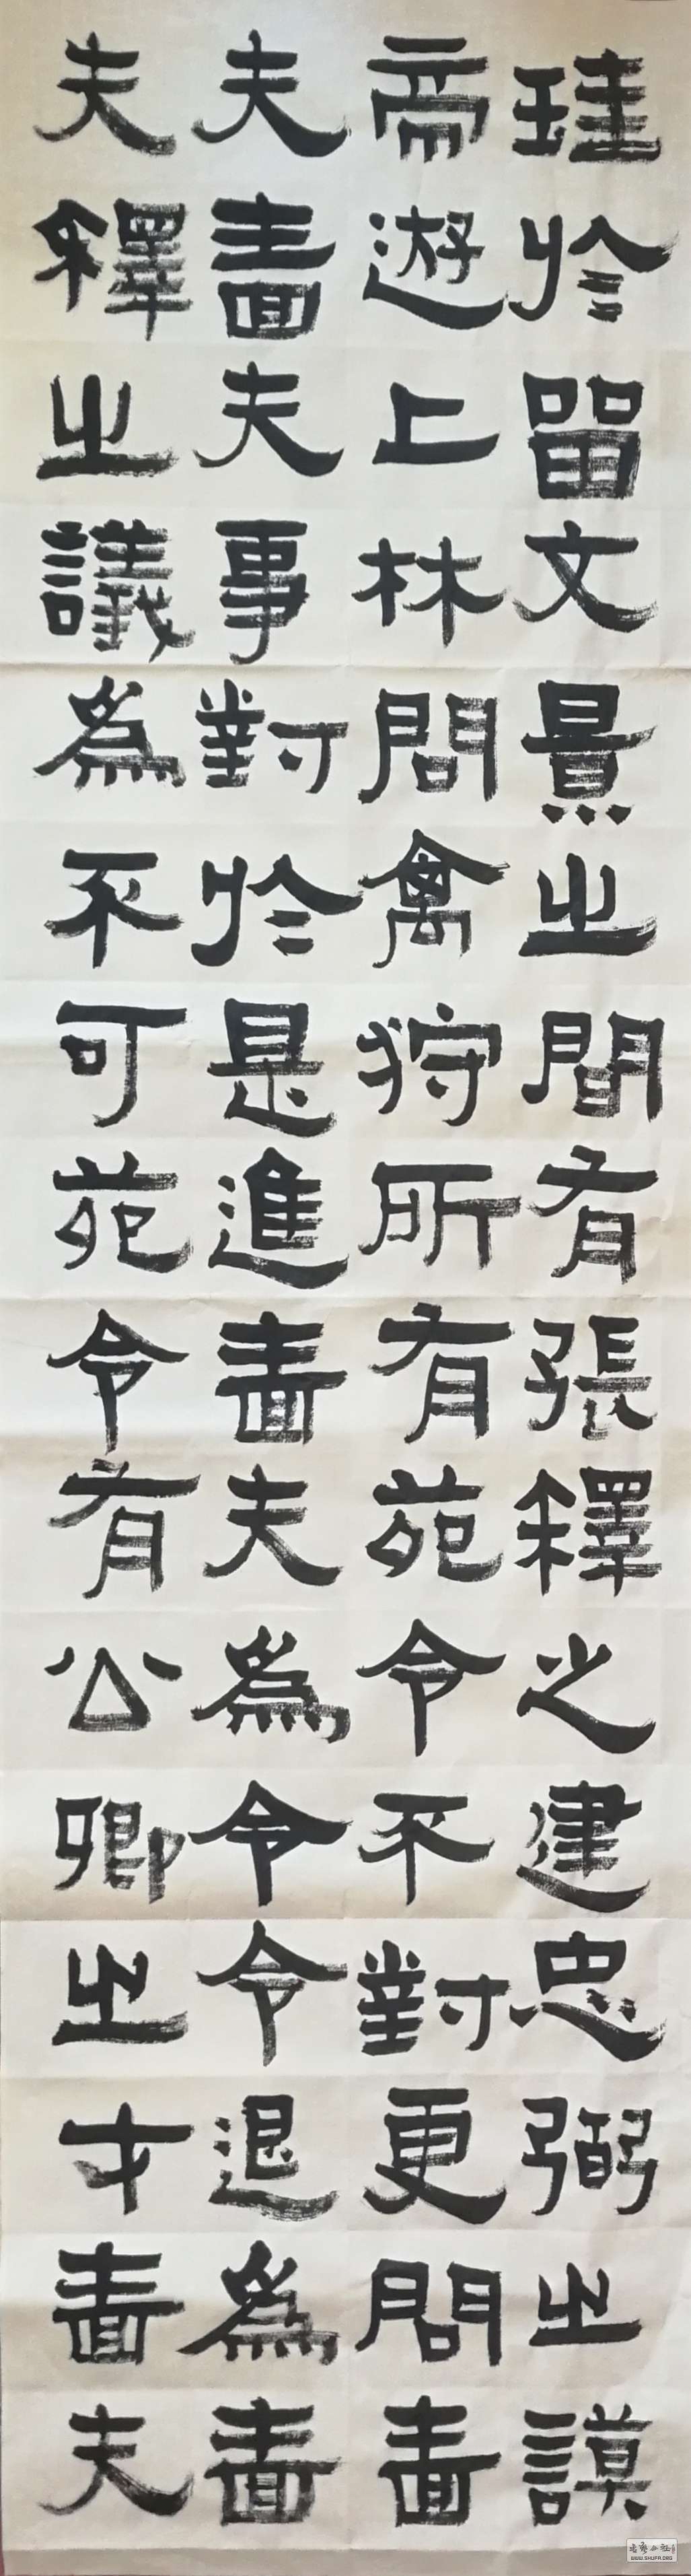 珪於留文景之間有張釋之建忠弼之謨
帝遊上林問禽狩所有苑令不對更問嗇
夫嗇夫事對於是進嗇夫為令令退為嗇
夫釋之議為不可苑令有公卿之才嗇夫
WWW.SHUFA.ORG